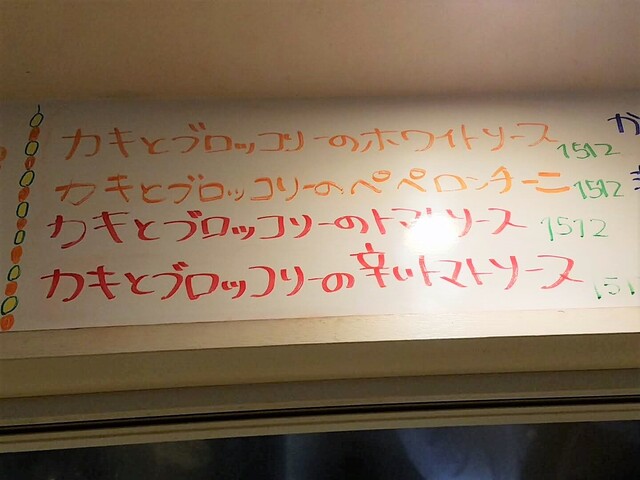 カキとブロッコリーのホワイトソース 1512
カキとブロッコリーのペペロンチーニ 1512
カキとブロッコリーのトマトソース 1512
カキとブロッコリーの辛いトマトソース 151
か